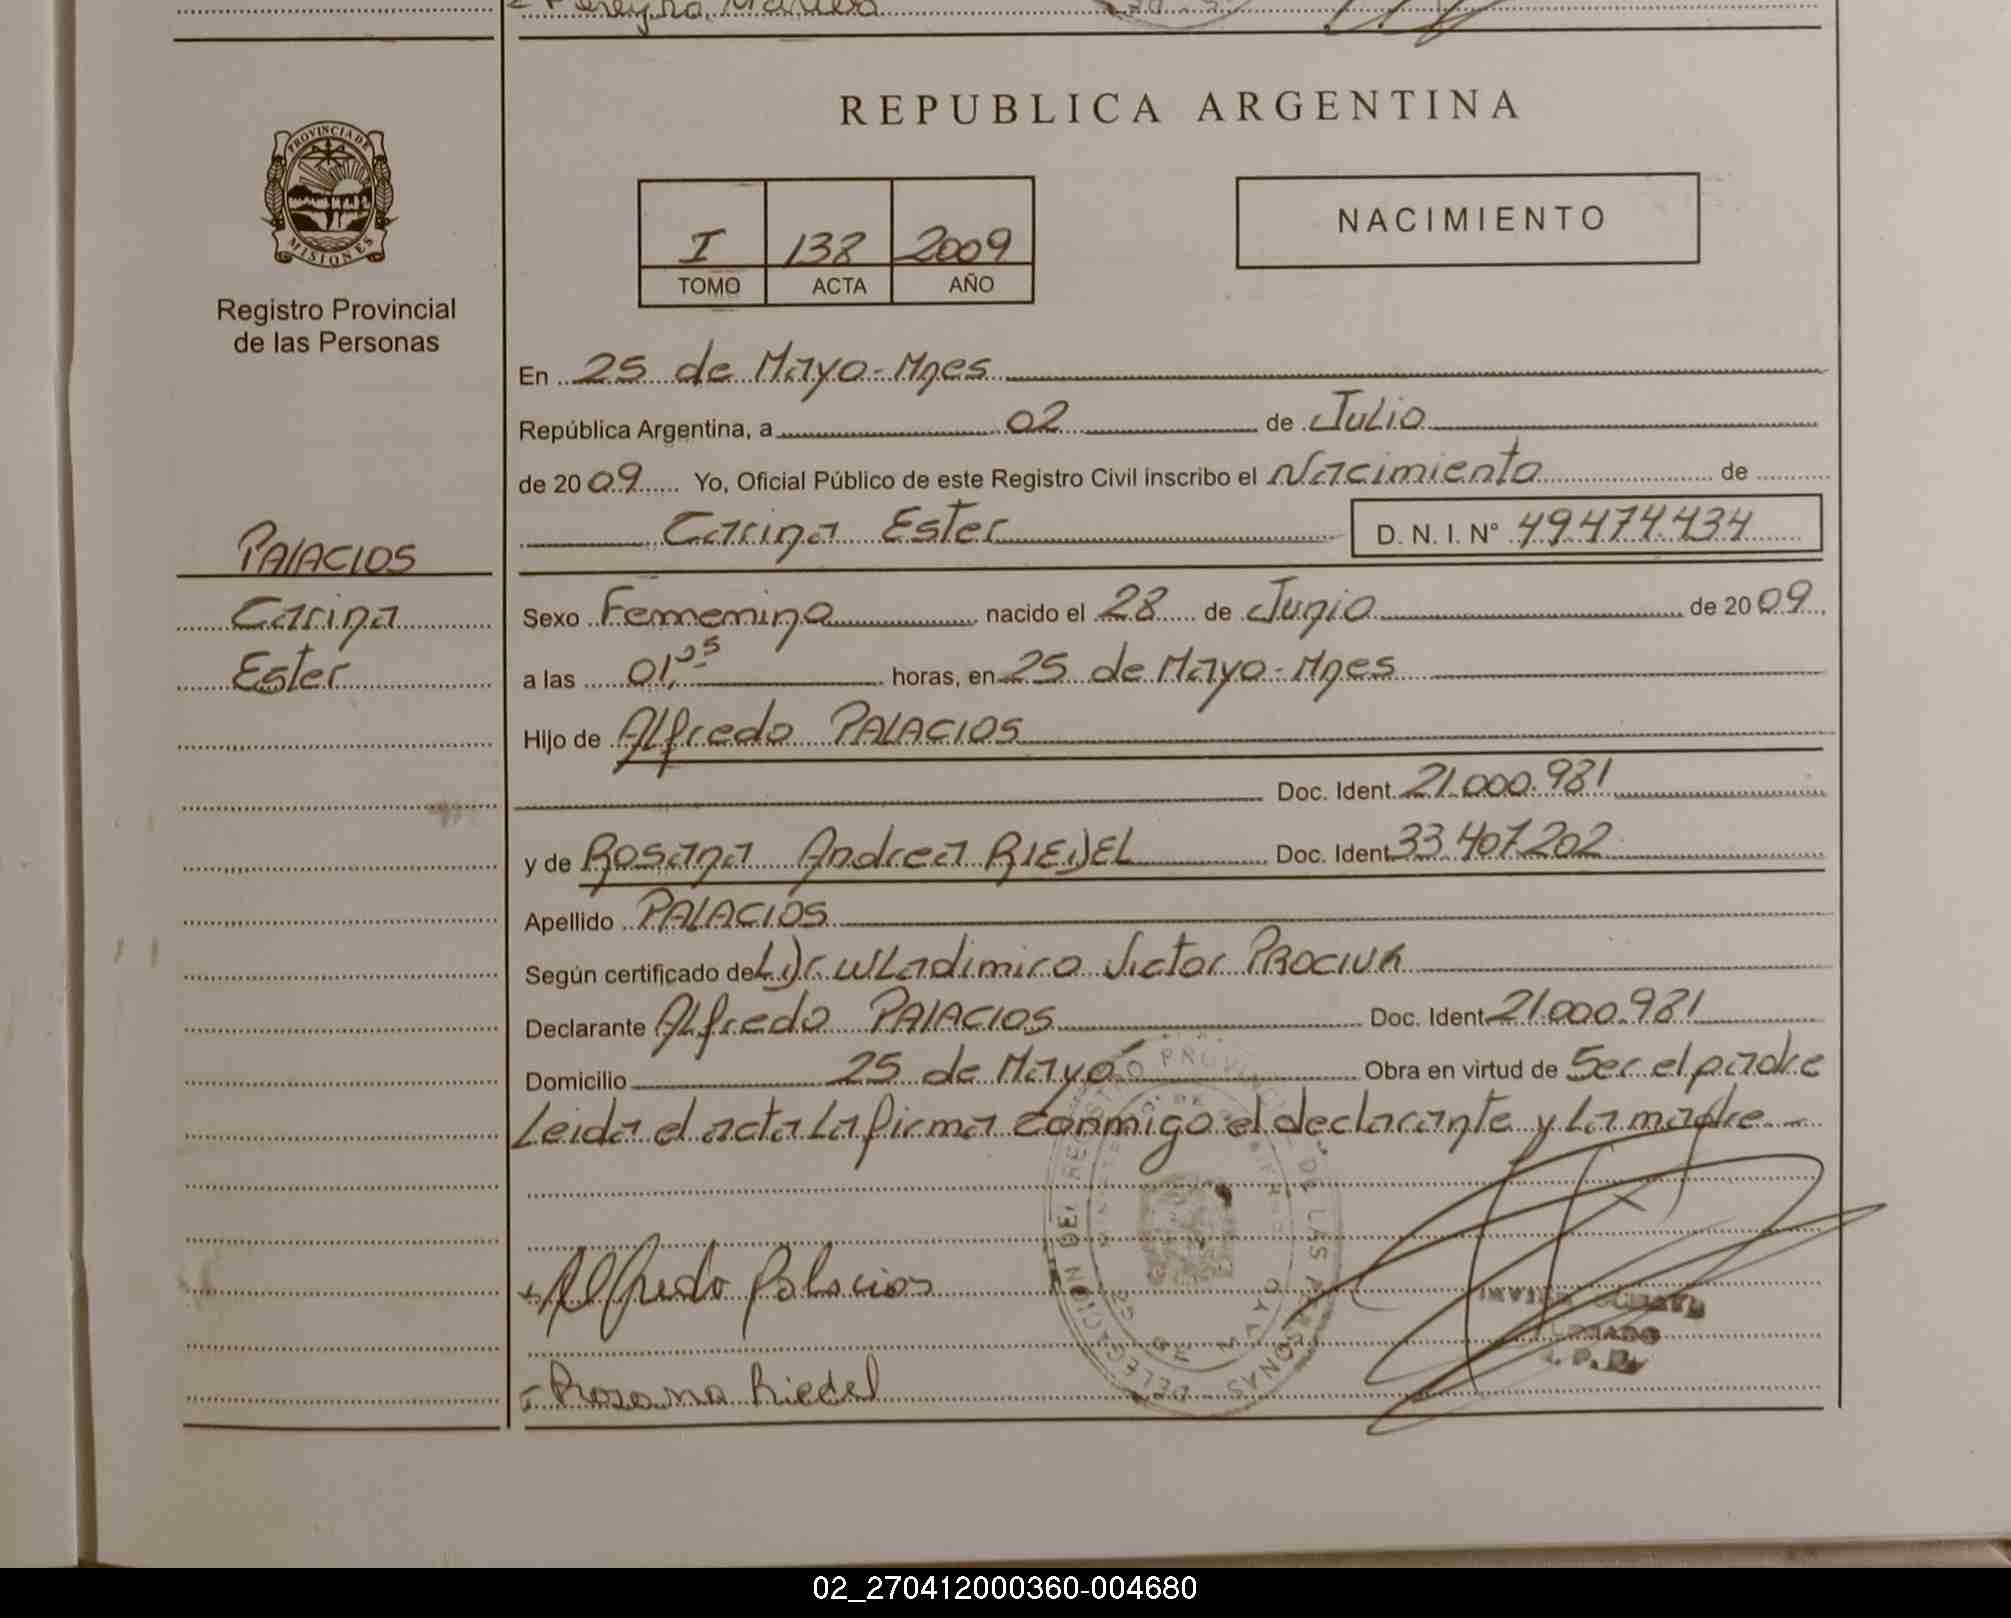 Pereyra, Mariela
REPUBLICA ARGENTINA
PROVINCIA DE
MISIONES
Registro Provincial
de las Personas
I 138 2009
TOMO ACTA AÑO
NACIMIENTO
En 25 de Mayo-Mnes
República Argentina, a 02 de Julio
de 2009 Yo, Oficial Público de este Registro Civil inscribo el Nacimiento de
Carina Ester D. N. I. N° 49.474.434
PALACIOS
Carina
Ester
Sexo Femenino nacido el 28 de Junio de 2009
a las 01,05 horas, en 25 de Mayo-Mnes
Hijo de Alfredo PALACIOS
Doc. Ident. 21.000.981
y de Rosana Andrea RIEDEL Doc. Ident. 33.407.202
Apellido PALACIOS
Según certificado de Dr. Wladimiro Victor PROCIUK
Declarante Alfredo PALACIOS Doc. Ident. 21.000.981
Domicilio 25 de Mayo Obra en virtud de Ser el padre
Leida el acta La firma conmigo el declarante y La madre
Alfredo Palacios
Rosana Riedel
DELEGACION DEL REGISTRO PROVINCIAL DE LAS PERSONAS
25 DE MAYO
02_270412000360-004680